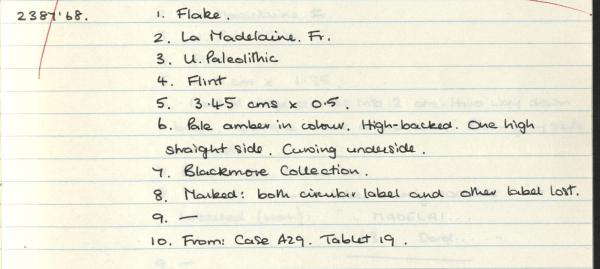 2387'68. 1. Flake.
2. La Madelaine. Fr.
3. U. Paleolithic
4. Flint
5. 3.45 cms x 0.5.
6. Pale amber in colour. High-backed. One high
straight side. Curving underside.
7. Blackmore Collection.
8. Marked: both circular label and other label lost.
9. —
10. From: Case A29. Tablet 19.